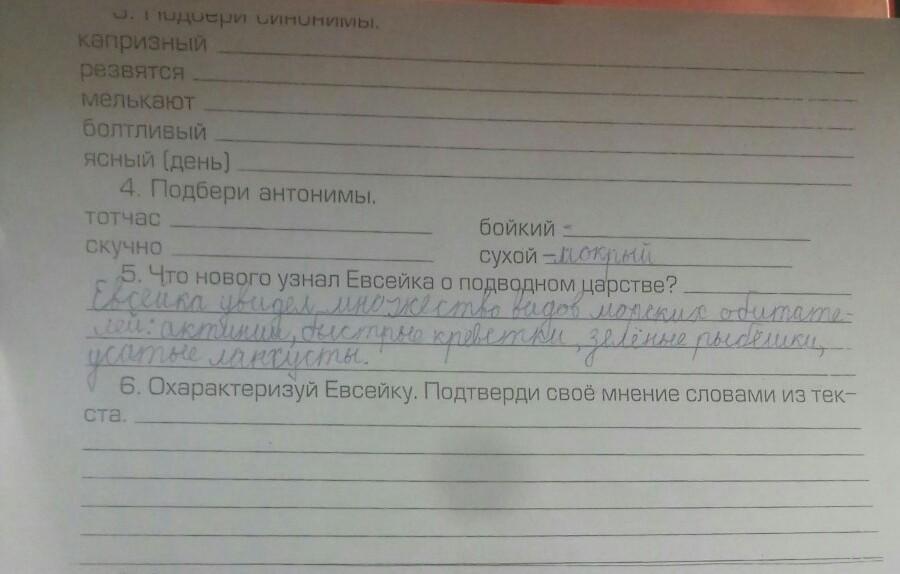 3. Подбери синонимы.
капризный
резвятся
мелькают
болтливый
ясный (день)
4. Подбери антонимы.
тотчас
бойкий -
скучно
сухой – мокрый
5. Что нового узнал Евсейка о подводном царстве?
Евсейка увидел множество видов морских обитате-
лей: актинии, быстрые креветки, зелёные рыбёшки,
усатые лангусты.
6. Охарактеризуй Евсейку. Подтверди своё мнение словами из тек-
ста.